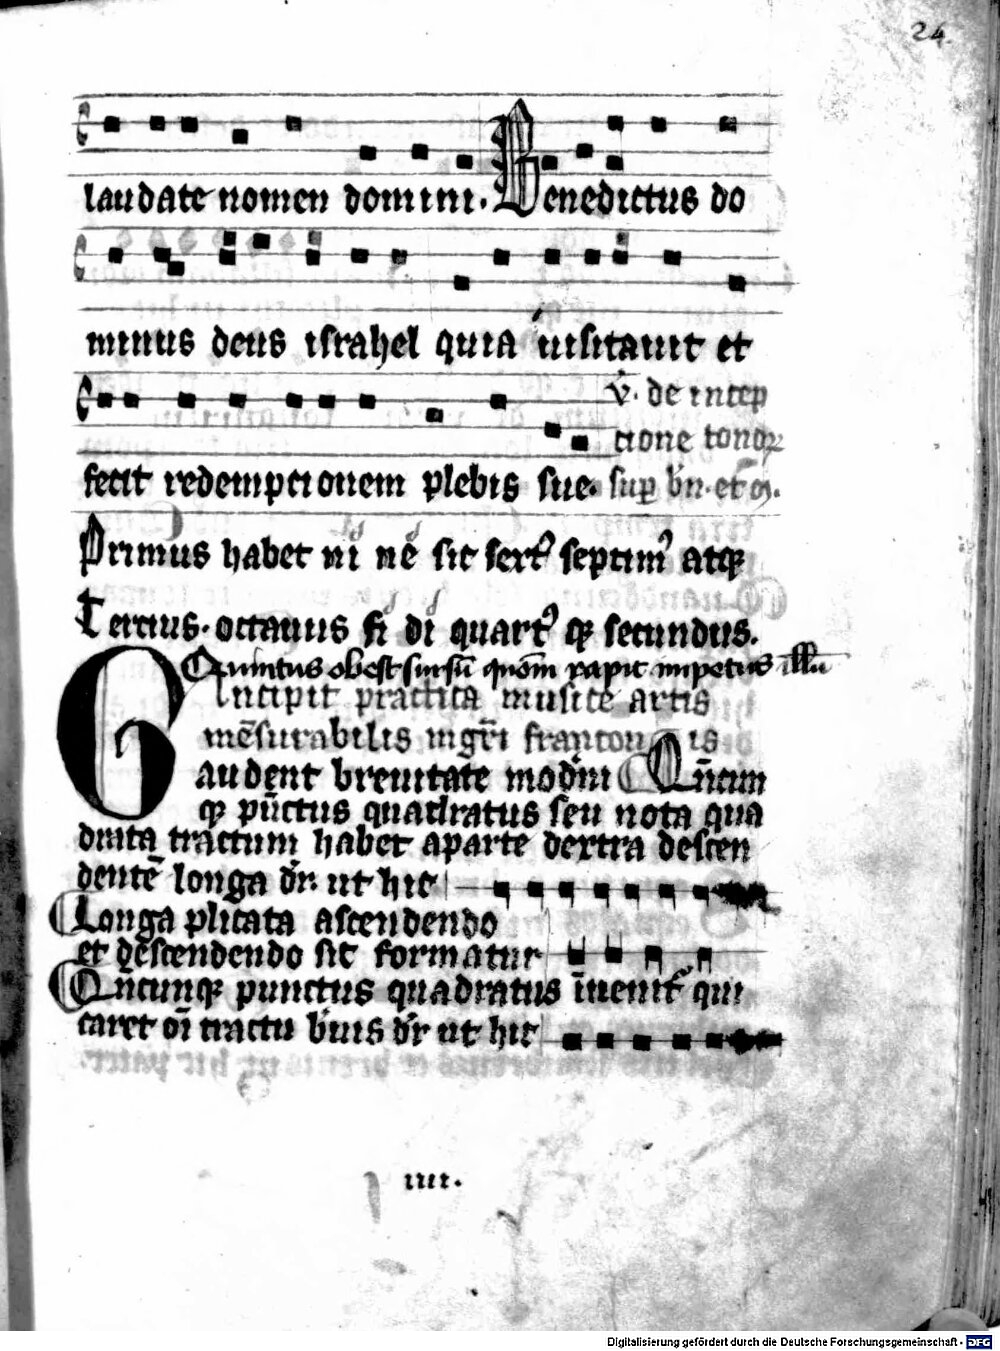 24.
laudate nomen domini. Benedictus do
minus deus israhel quia uisitauit et
v̇. de incep
cione tonoꝝ
fecit redempcionem plebis sue. suꝑ bn̄. et
Primus habet ni ne sic sext᷒ septim᷒ atqꝫ
Tercius. octauus fi di quart᷒ qꝫ secundus.
Quintus obest sursū quom̄ rapit impetus illū
Incipit practica musice artis
mēsurabilis mgr̄i franconis
Gaudent breuitate modern̄i Qn̄cun
qꝫ pūctus quadratus seu nota qua
drata tractum habet aparte dextra descen
dentē longa dr̄. ut hic
Longa plicata ascendendo
et descendendo sic formatur
Qn̄cunqꝫ punctus quadratus īuenit᷒ qui
caret oī tractu b̄uis dr̄ ut hic
iiii.
Digitalisierung gefördert durch die Deutsche Forschungsgemeinschaft - DFG